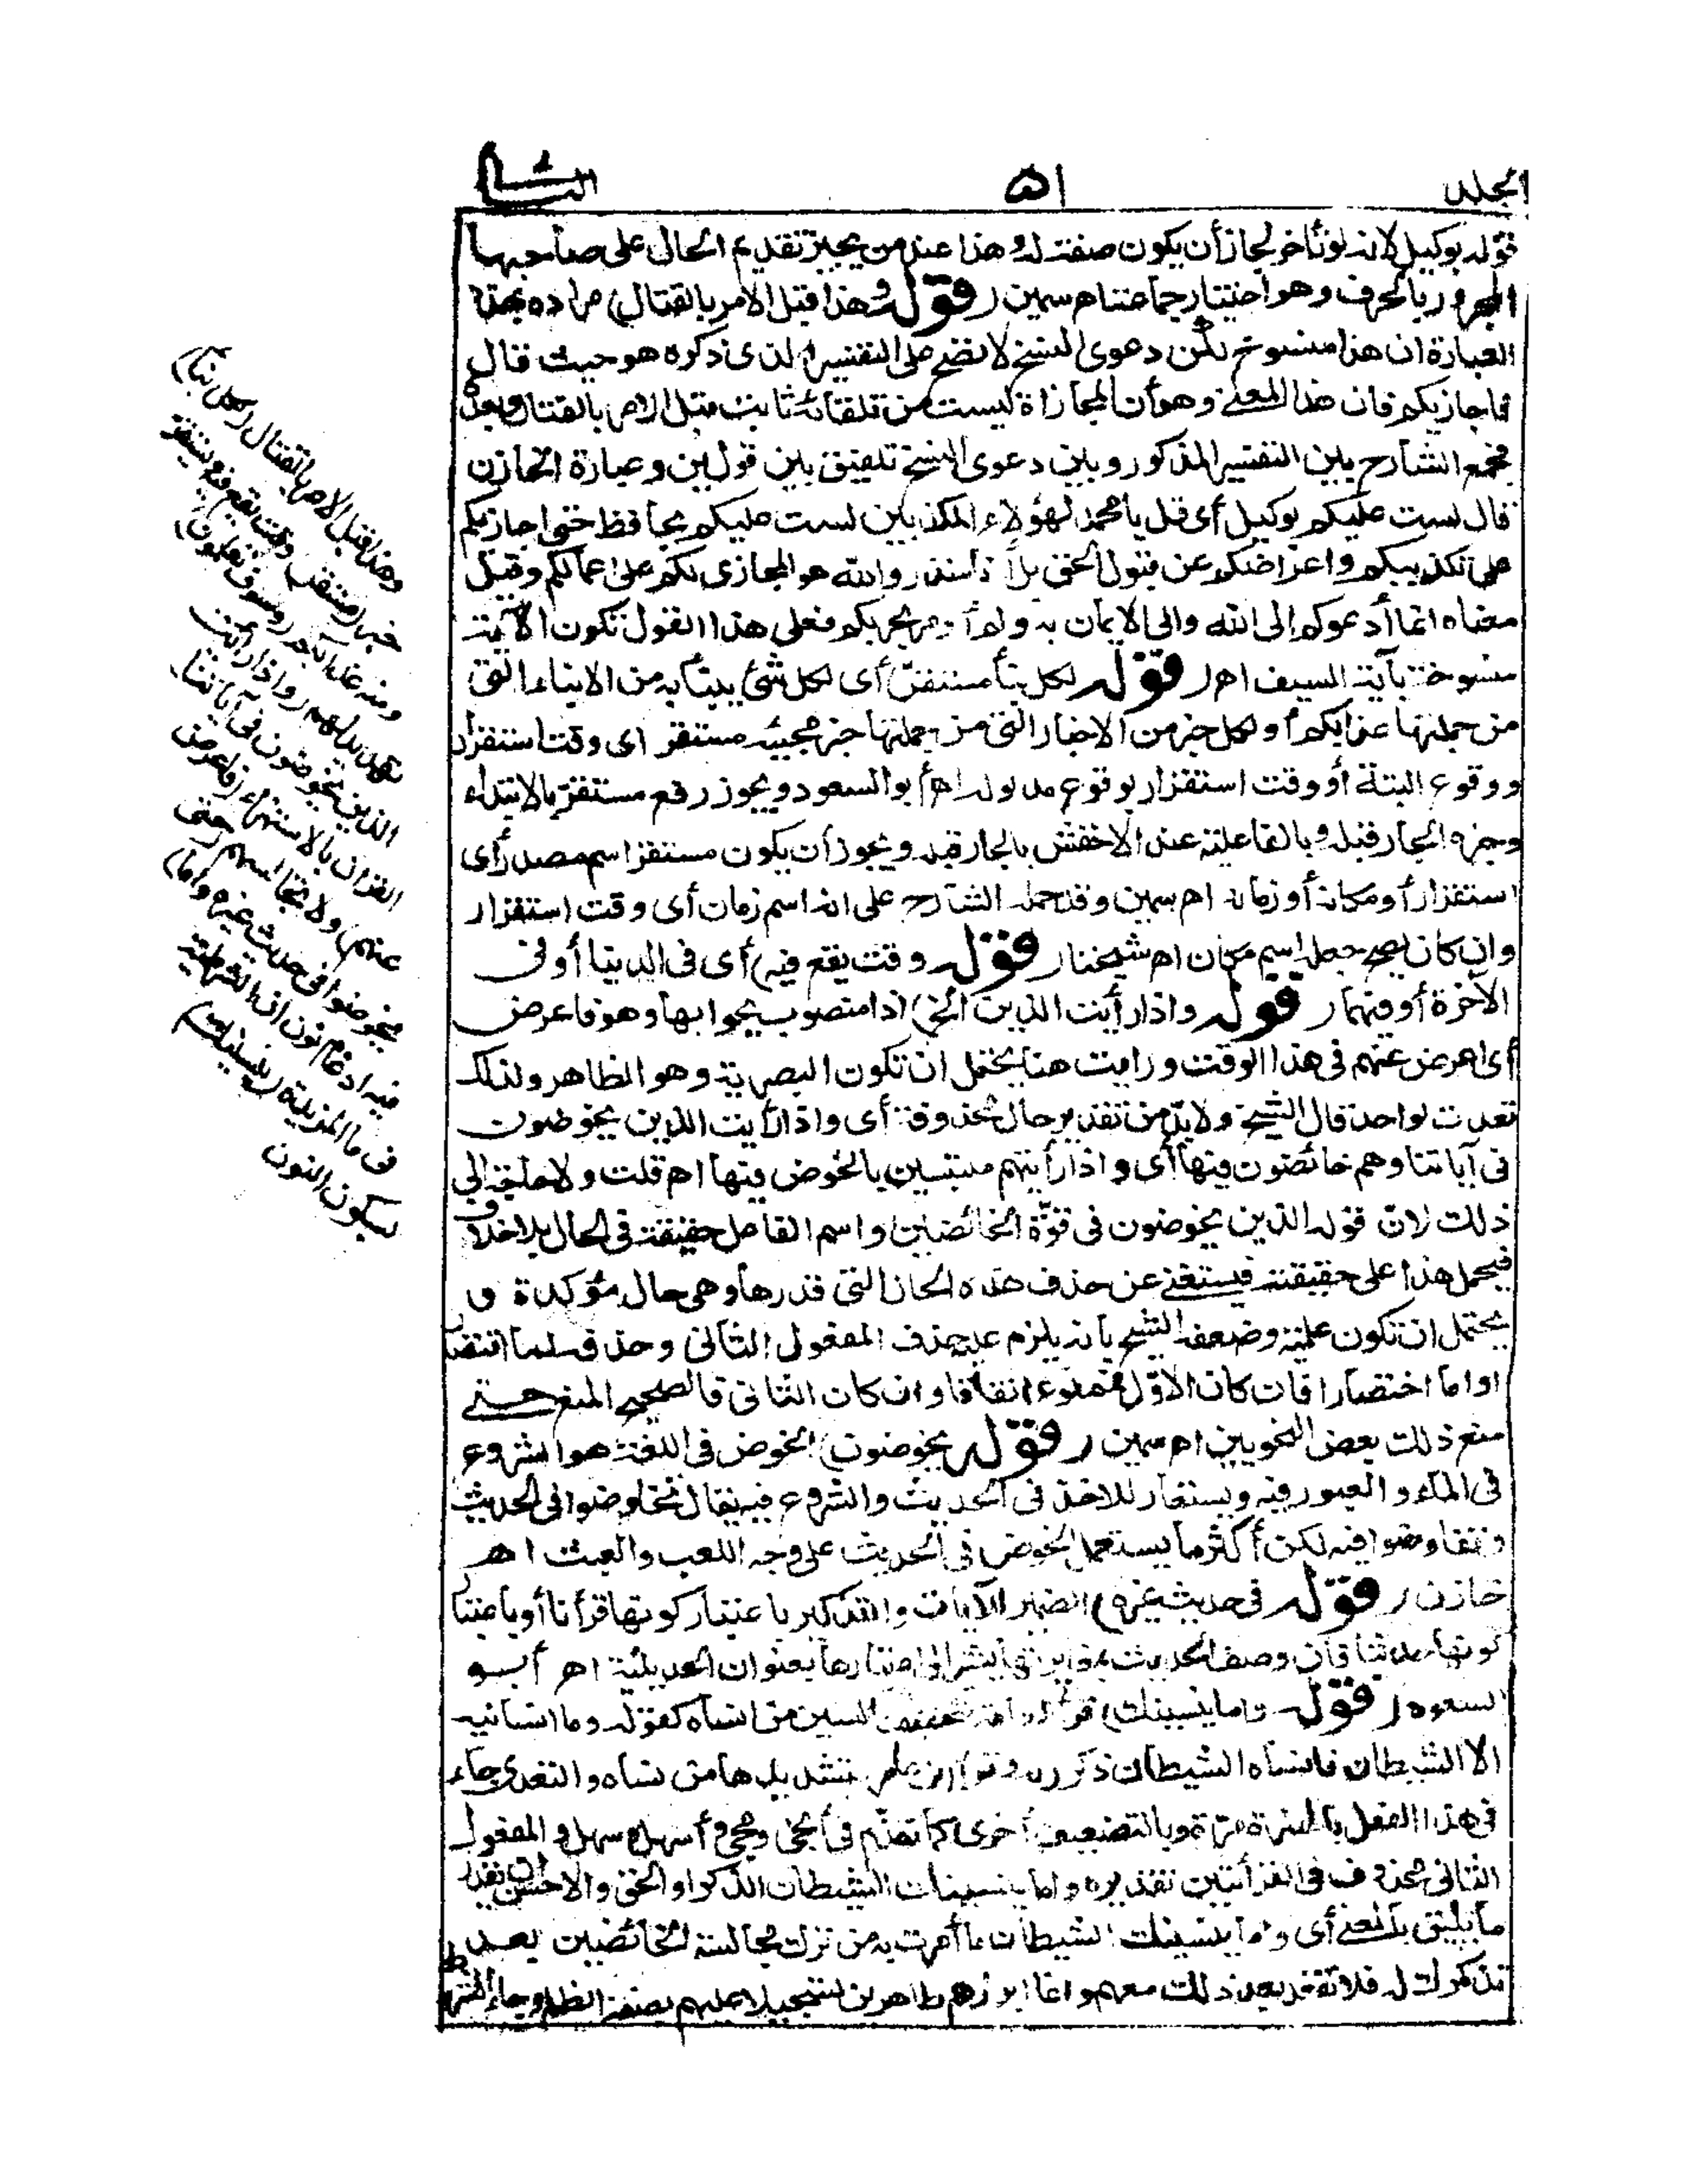 المجلد
٥١
الثاني
قوله بوكيل لانه لو تأخر لجاز أن يكون صفة له وهذا عند من يجيز تقديم الحال على صاحبها
المجرور بالحرف وهو اختيار جماعة اه سمين (قوله وهذا قبل الأمر بالقتال) مراده بهذه
العبارة ان هذا منسوخ لكن دعوى النسخ لا تضح على التفسير الذى ذكره هو حيث قال
فاجازيكم فان هذا المعنى وهو أن المجازاة ليست من تلقائه ثابت قبل الامر بالقتال وبعده
فجمع الشارح بين التفسير المذكور وبين دعوى النسخ تلفيق بين قولين وعبارة الخازن
قال لست عليكم بوكيل أى قل يا محمد لهؤلاء المكذبين لست عليكم بحافظ حتى اجازيكم
على تكذيبكم واعراضكم عن قبول الحق بل أنا منذر والله هو المجازى لكم على اعمالكم وقيل
معناه انما أدعوكم إلى الله والى الايمان به ولم أومر بحربكم فعلى هذا القول تكون الآية
منسوخة بآية السيف اهـ (قوله لكل نبأ مستقر) أى لكل شئ ينبأ به من الانباء التى
من جملتها عذابكم أو لكل خبر من الاخبار التى من جملتها خبر مجيئه مستقر اى وقت استقرار
ووقوع البتة أو وقت استقرار بوقوع مدلوله اهـ أبو السعود ويجوز رفع مستقر بالابتداء
وخبره الجار قبله وبالفاعلية عند الاخفش بالجار قبله ويجوز أن يكون مستقر اسم مصدر أى
استقرار أو مكانه أو زمانه اهـ سمين وقد حمله الشارح على انه اسم زمان أى وقت استقرار
وان كان يصح جعله اسم مكان اهـ شيخنا (قوله وقت يقع فيه) أى فى الدنيا أو فى
الآخرة أو فيهما (قوله واذا رأيت الذين الخ) اذا منصوب بجوابها وهو فاعرض
أى اعرض عنهم فى هذا الوقت ورايت هنا يحتمل ان تكون البصرية وهو الظاهر ولذلك
تعدت لواحد قال الشيخ ولا بد من تقدير حال محذوفة أى واذا رأيت الذين يخوضون
فى آياتنا وهم خائضون فيها أى واذا رأيتهم ملتبسين بالخوض فيها اهـ قلت ولا حاجة إلى
ذلك لان قوله الذين يخوضون فى قوّة الخائضين واسم الفاعل حقيقة فى الحال بلا خلاف
فيحمل هذا على حقيقته فيستغنى عن حذف هذه الحال التى قدرها وهى حال مؤكدة و
يحتمل ان تكون علمية وضعفه الشيخ بانه يلزم عليه حذف المفعول الثانى وحذفه اما اقتصارا
او اما اختصارا فان كان الاوّل فممنوع اتفاقا وان كان الثانى فالصحيح المنع حتى
منع ذلك بعض النحويين اهـ سمين (قوله يخوضون) الخوض فى اللغة هو الشروع
فى الماء والعبور فيه ويستعار للاخذ فى الحديث والشروع فيه يقال تخاوضوا فى الحديث
وتفاوضوا فيه لكن أكثر ما يستعمل الخوض فى الحديث على وجه اللعب والعبث اهـ
خازن (قوله فى حديث غيره) الضمير للآيات والتذكير باعتبار كونها قرأنا أو باعتبار
كونها حديثا فان وصف الحديث بمغايرتها يشير الى اعتبارها بعنوان الحديثية اهـ أبو
السعود (قوله واما ينسينك) قرأ العامة بتخفيف السين من انساه كقوله وما انسانيه
الا الشيطان فانساه الشيطان ذكر ربه وقرأ ابن عامر بتشديدها من نساه والتعدى جاء
فى هذا الفعل بالهمزة مرّة وبالتضعيف أخرى كما تقدّم فى أنجى ونجى وأمهل ومهل والمفعول
الثانى محذوف فى القرأتين تقديره واما ينسينك الشيطان الذكر او الحق والاحسن ان يقدر
ما يليق بالمعنى أى واما ينسينك الشيطان ما أمرت به من ترك مجالسة الخائضين بعد
تذكرك له فلا تقعد بعد ذلك معهم وانما ابرزهم ظاهرين تسجيلا عليهم بصفة الظلم وجاء الشرط
وهذا قبل الامر بالقتال (لكل نبأ)
خبر (مستقر) وقت يقع فيه ويستقر
ومنه عذابكم (وسوف تعلمون)
تهديد لهم (واذا رأيت
الذين يخوضون فى آياتنا)
القران بالاستهزاء (فاعرض
عنهم) ولا تجالسهم (حتى
يخوضوا فى حديث غيره واما)
فيه ادغام نون ان الشرطية
فى ما المزيدة (ينسينك)
بسكون النون